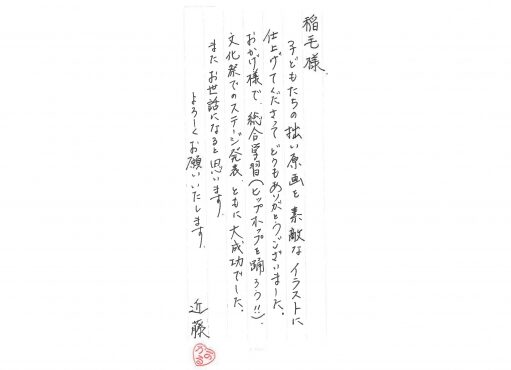 稲毛様
子どもたちの拙い原画を素敵なイラストに
仕上げてくださってどうもありがとうございました。
おかげ様で、総合学習(ヒップホップを踊ろう!!)、
文化祭でのステージ発表、ともに大成功でした。
またお世話になると思います。
よろしくお願いいたします。
近藤